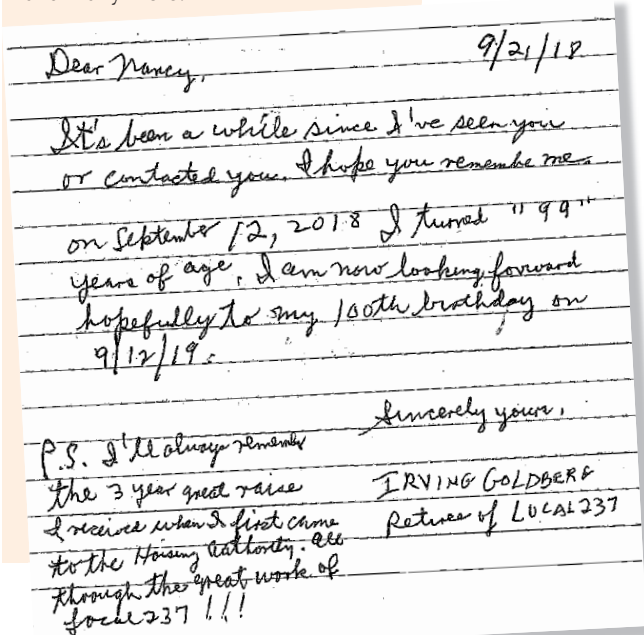 9/21/18
Dear Nancy,
It's been a while since I've seen you
or contacted you. I hope you remembe me.
on September 12, 2018 I turned "99"
years of age. I am now looking forward
hopefully to my 100th birthday on
9/12/19.
Sincerely yours,
IRVING GOLDBERG
Retiree of LOCAL 237
P.S. I'll always remember
the 3 year great raise
I received when I first came
to the Housing Authority. All
through the great work of
Local 237 !!!